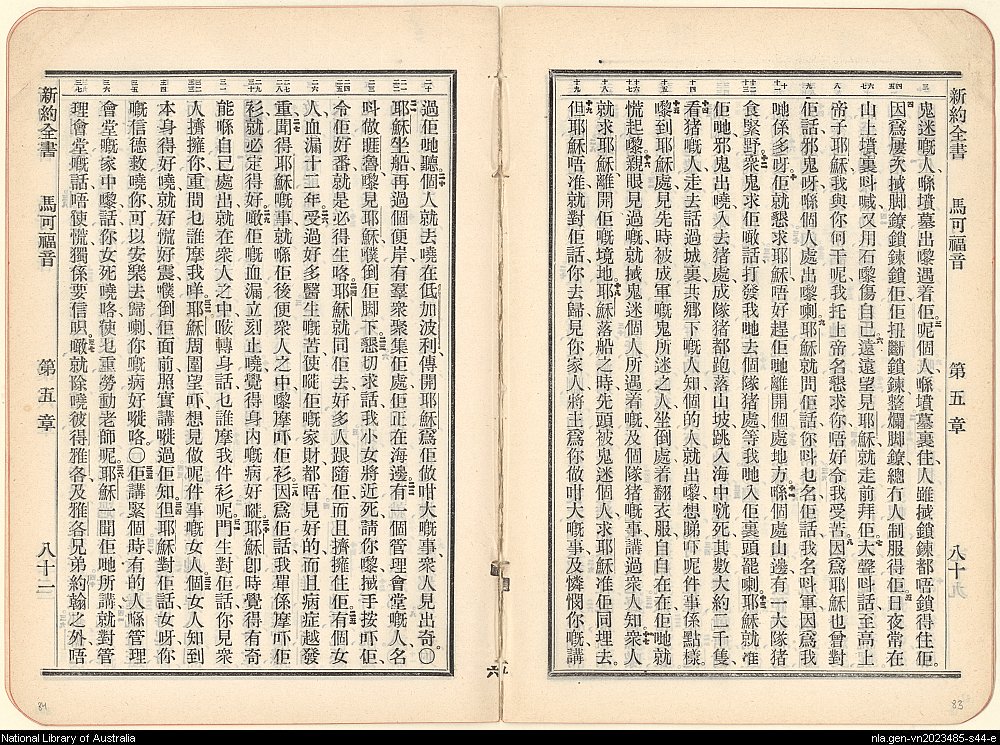 新約全書 馬可福音 第五章 八十九
鬼迷嘅人喺墳墓出嚟遇着佢呢個人喺墳墓裏住人雖搣鎖鍊都唔鎖得住佢
因爲屢次搣脚鐐鎖鍊鎖佢佢扭斷鎖鍊整爛脚鐐總冇人制服得佢日夜常在
山上墳裏呌喊又用石嚟傷自己遠遠望見耶穌就走前拜佢大聲呌話至高上
帝子耶穌我與你何干呢我托上帝名懇求你唔好令我受苦因爲耶穌也曾對
佢話邪鬼呀喺個人處出嚟喇耶穌就問佢話你呌乜名佢話我名呌軍因爲我
哋係多呀佢就懇求耶穌唔好趕佢哋離開個處地方喺個處山邊有一大隊猪
食緊野衆鬼求佢噉話打發我哋去個隊猪處等我哋入佢裏頭罅喇耶穌就准
佢哋邪鬼出曉入去猪處成隊猪都跑落山坡跳入海中唴死其數大約二千隻
看猪嘅人走去話過城裏共鄕下嘅人知個的人就出嚟想睇吓呢件事係點樣
嚟到耶穌處見先時被成軍嘅鬼所迷之人坐倒處着翻衣服自自在在佢哋就
慌起嚟親眼見過嘅就搣鬼迷個人所遇着嘅及個隊猪嘅事講過衆人知衆人
就求耶穌離開佢嘅境地耶穌落船之時先頭被鬼迷個人求耶穌准佢同埋去
但耶穌唔准就對佢話你去歸見你家人將主爲你做咁大嘅事及憐憫你嘅講
過佢哋聽個人就去曉在低加波利傳開耶穌爲佢做咁大嘅事衆人見出奇〇
耶穌坐船再過個便岸有羣衆聚集佢處佢正在海邊有一個管理會堂嘅人名
呌做睚魯嚟見耶穌僕倒佢脚下懇切求話我小女將近死請你嚟搣手按吓佢
令佢好番就是必得生咯耶穌就同佢去好多人跟隨佢而且擠擁住佢有個女
人血漏十二年受過好多醫生嘅苦使嘥佢嘅家財都唔見好的而且病症越發
重聞得耶穌嘅事就喺佢後便衆人之中嚟摩吓佢衫因爲佢話我單係摩吓佢
衫就必定得好噉佢嘅血漏立刻止曉覺得身內嘅病好嘥耶穌卽時覺得有奇
能喺自己處出就在衆人之中𨅝轉身話乜誰摩我件衫呢門生對佢話你見衆
人擠擁你重問乜誰摩我咩耶穌周圍望吓想見做呢件事嘅女人個女人知到
本身得好曉就好慌好震僕倒佢面前照實講嘥過佢知但耶穌對佢話女呀你
嘅信德救曉你可以安樂去歸喇你嘅病好嘥咯〇佢講緊個時有的人喺管理
會堂嘅家中嚟話你女死曉咯使乜重勞動老師呢耶穌一聞佢哋所講就對管
理會堂嘅話唔使慌獨係要信呮噉就除曉彼得雅各及雅各兄弟約翰之外唔
新約全書 馬可福音 第五章 八十二
六
84
83
National Library of Australia
nla.gen-vn2023485-s44-e